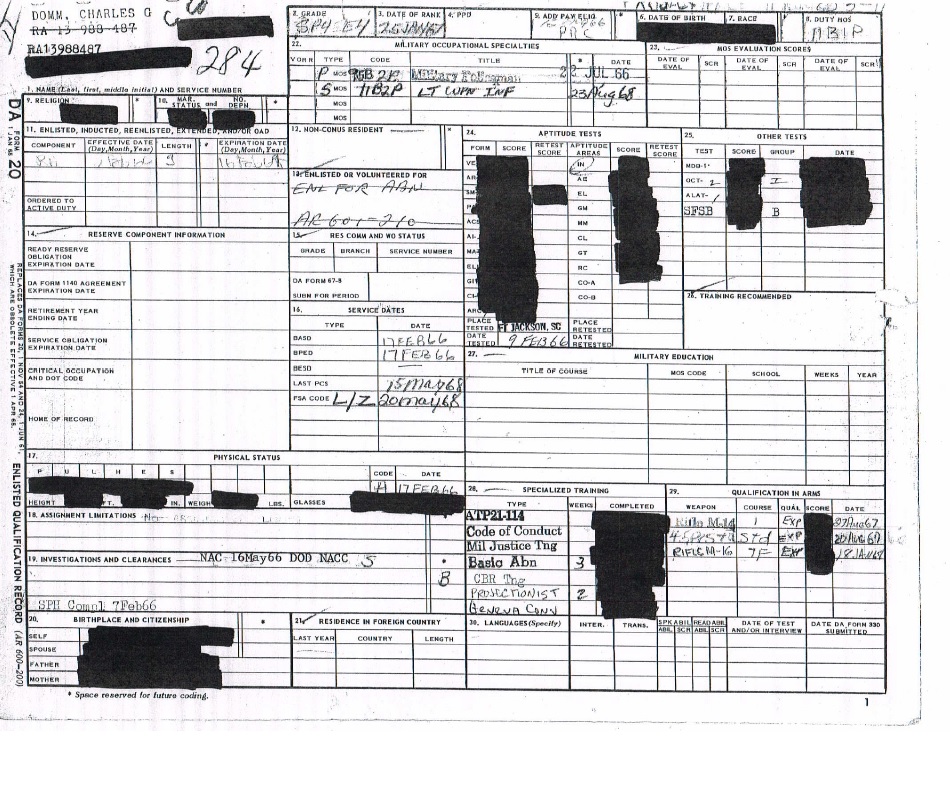 DOMM, CHARLES G
RA 13 988 487
RA13988487
284
1. NAME (Last, first, middle initial) AND SERVICE NUMBER
2. GRADE
SP4 E4
3. DATE OF RANK
4. PPD
5. ADD PAY ELIG
PRC
6. DATE OF BIRTH
7. RACE
8. DUTY MOS
11B1P
22. MILITARY OCCUPATIONAL SPECIALTIES
TYPE CODE TITLE * DATE
P MOS 95B 2P Military Policeman 22 JUL 66
S MOS 11B2P LT WPN INF 23 Aug 68
MOS
MOS
23. MOS EVALUATION SCORES
DATE OF EVAL SCR DATE OF EVAL SCR DATE OF EVAL SCR
9. RELIGION
10. MAR. STATUS and NO. DEPN.
11. ENLISTED, INDUCTED, REENLISTED, EXTENDED, AND/OR OAD
COMPONENT EFFECTIVE DATE (Day, Month, Year) LENGTH * EXPIRATION DATE (Day, Month, Year)
ORDERED TO ACTIVE DUTY
12. NON-CONUS RESIDENT
13. ENLISTED OR VOLUNTEERED FOR
ENL FOR ABN
AR 601-210
14. RESERVE COMPONENT INFORMATION
READY RESERVE OBLIGATION EXPIRATION DATE
DA FORM 1140 AGREEMENT EXPIRATION DATE
RETIREMENT YEAR ENDING DATE
SERVICE OBLIGATION EXPIRATION DATE
CRITICAL OCCUPATION AND DOT CODE
HOME OF RECORD
15. RES COMM AND WO STATUS
GRADE BRANCH SERVICE NUMBER
DA FORM 67-5
SUBM FOR PERIOD
16. SERVICE DATES
TYPE DATE
BASD 17FEB66
BPED 17FEB66
BESD
LAST PCS 15May68
FSA CODE L/Z 20may68
24. APTITUDE TESTS
FORM SCORE RETEST SCORE APTITUDE AREAS SCORE RETEST SCORE
IN
AE
EL
GM
MM
CL
GT
RC
CO-A
CO-B
PLACE TESTED FT JACKSON, SC PLACE RETESTED
DATE TESTED 9 FEB66 DATE RETESTED
25. OTHER TESTS
TEST SCORE GROUP DATE
OCT- 2 I
ALAT-
SFSB B
26. TRAINING RECOMMENDED
27. MILITARY EDUCATION
TITLE OF COURSE MOS CODE SCHOOL WEEKS YEAR
17. PHYSICAL STATUS
P U L H E S CODE DATE
A 17FEB66
HEIGHT FT. IN. WEIGHT LBS. GLASSES
18. ASSIGNMENT LIMITATIONS
19. INVESTIGATIONS AND CLEARANCES NAC-16May66 DOD NACC S
B
SPH Compl 7Feb66
20. BIRTHPLACE AND CITIZENSHIP
SELF
SPOUSE
FATHER
MOTHER
21. RESIDENCE IN FOREIGN COUNTRY
LAST YEAR COUNTRY LENGTH
28. SPECIALIZED TRAINING
TYPE WEEKS COMPLETED
ATP21-114
Code of Conduct
Mil Justice Tng
Basic Abn 3
CBR Tng
PROJECTIONIST 2
GENEVA CONV
29. QUALIFICATION IN ARMS
WEAPON COURSE QUAL SCORE DATE
Rifle M14 1 EXP 27Aug67
Std EXP
RIFLE M-16 EXP
30. LANGUAGES (Specify) INTER. TRANS. SPK ABIL READ ABIL DATE OF TEST AND/OR INTERVIEW DATE DA FORM 330 SUBMITTED
ABIL SCR ABIL SCR
* Space reserved for future coding.
1
DA FORM 20
1 JAN 65
REPLACES DA FORMS 20, 1 NOV 54 AND 24, 1 JUN 61, WHICH ARE OBSOLETE EFFECTIVE 1 APR 65.
ENLISTED QUALIFICATION RECORD (AR 600-200)